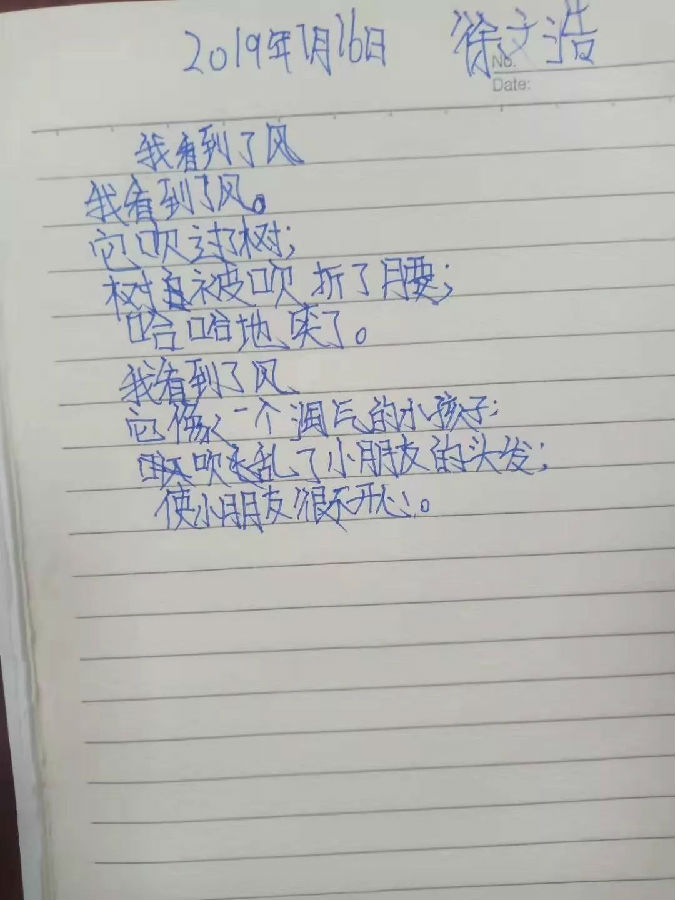 2019年7月16日 徐文浩
No.
Date:
我看到了风
我看到了风。
它吹过树;
树被吹折了腰;
哈哈地笑了。
我看到了风、
它像一个调气的小孩子:
吹乱了小朋友的头发;
使小朋友很不开心。